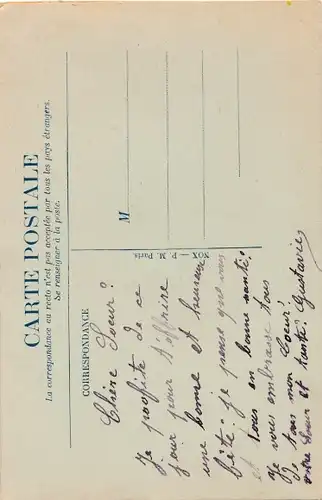 CARTE POSTALE
La correspondance au recto n'est pas acceptée par tous les pays étrangers.
Se renseigner à la poste.
CORRESPONDANCE
M
NOX — P. M. Paris
Chère Soeur?
Je profite de ce
jour pour t'éffrire
une bonne et heureux
fète. je pense que vous
et tous en bonne santé!
Je vous embrasse tous
Je tous mon Coeur!
votre Soeur et tante. Gustavie